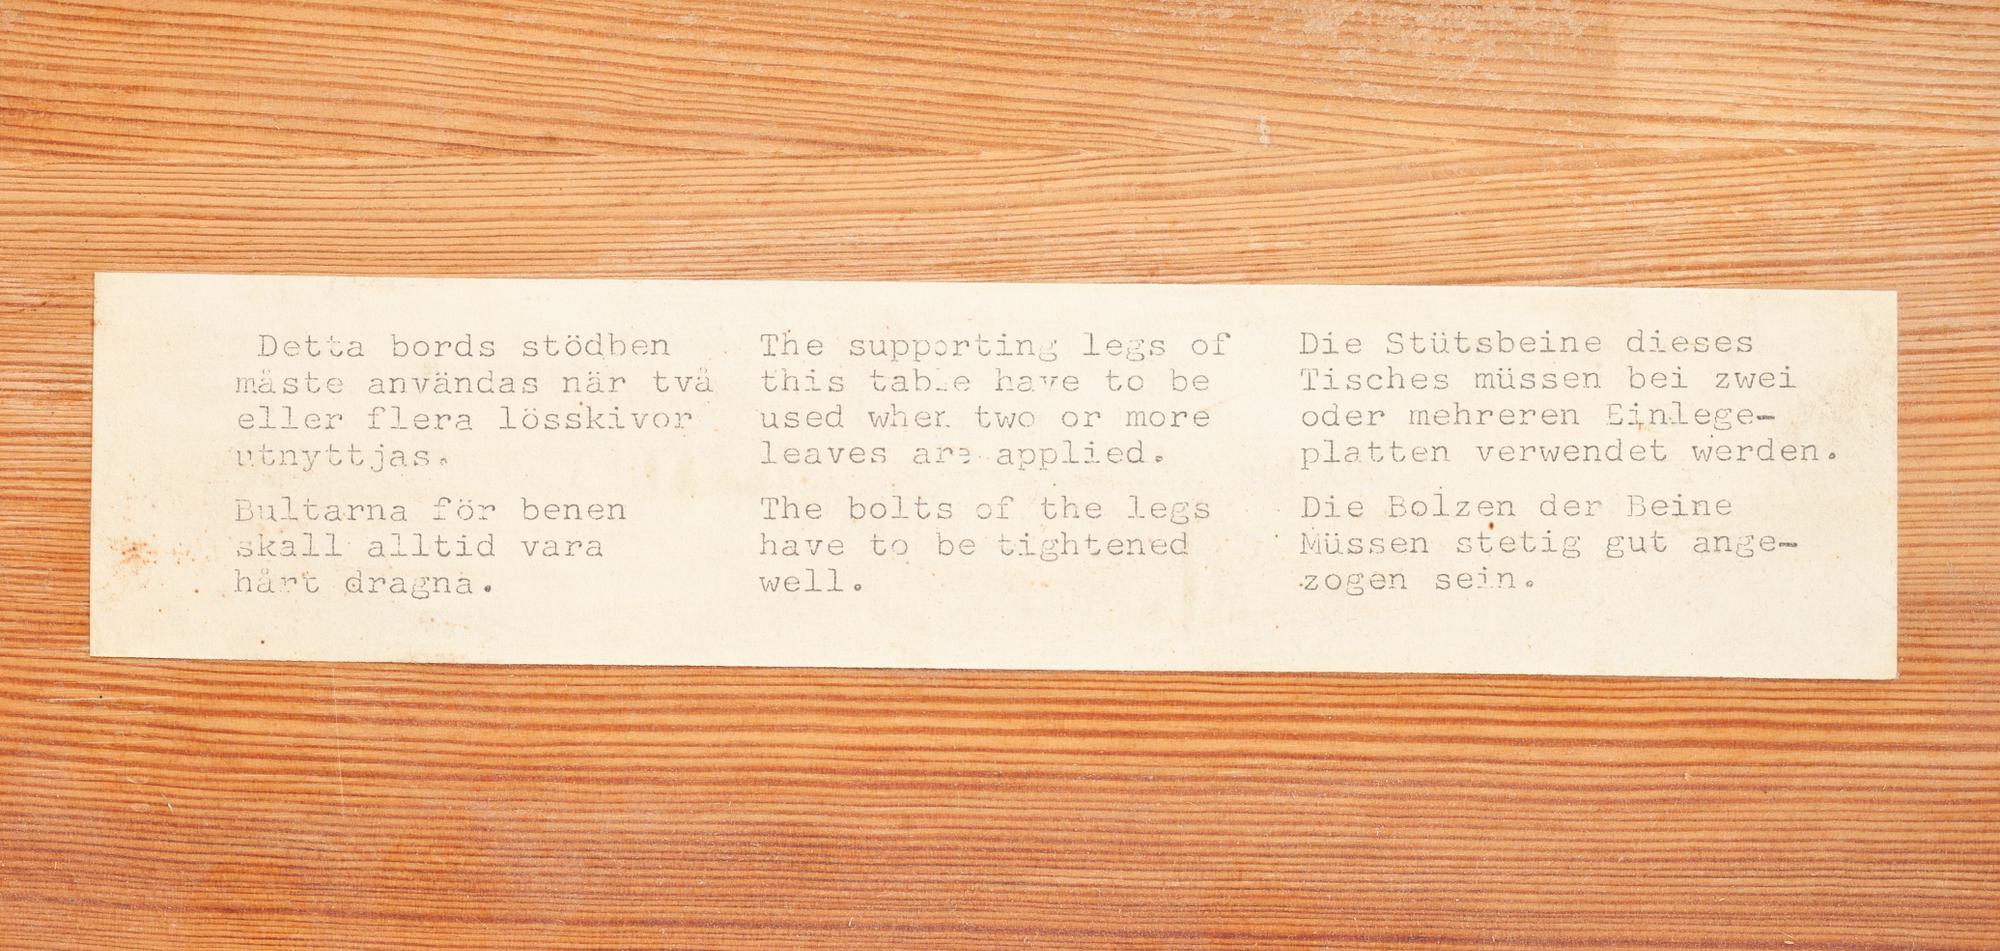 Detta bords stödben
måste användas när två
eller flera lösskivor
utnyttjas.
Bultarna för benen
skall alltid vara
hårt dragna.
The supporting legs of
this table have to be
used when two or more
leaves are applied.
The bolts of the legs
have to be tightened
well.
Die Stütsbeine dieses
Tisches müssen bei zwei
oder mehreren Einlege-
platten verwendet werden.
Die Bolzen der Beine
Müssen stetig gut ange-
zogen sein.